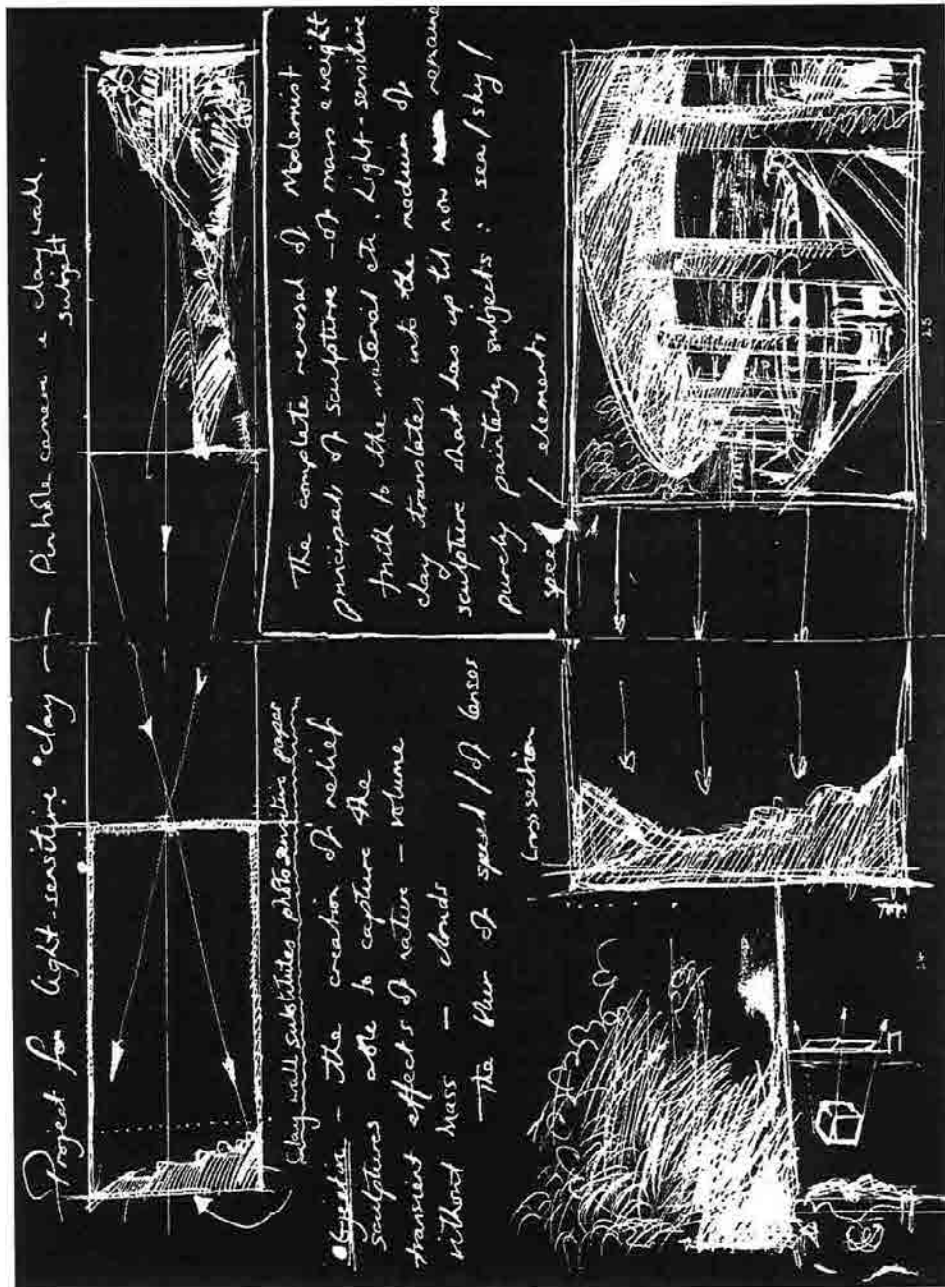 Project for light-sensitive "clay — Pinhole camera & clay wall.
subject
clay wall substitutes photosensitive paper
• Objective - the creation of relief
sculptures able to capture the
transient effects of nature - volume
without mass - clouds
- the blur of speed / of lenses
The complete reversal of Modernist
principals of sculpture - of mass & weight
truth to the material etc. Light-sensitive
clay translates into the medium of
sculpture what has up til now remained
purely painterly subjects : sea / sky /
speed / elements
Cross section